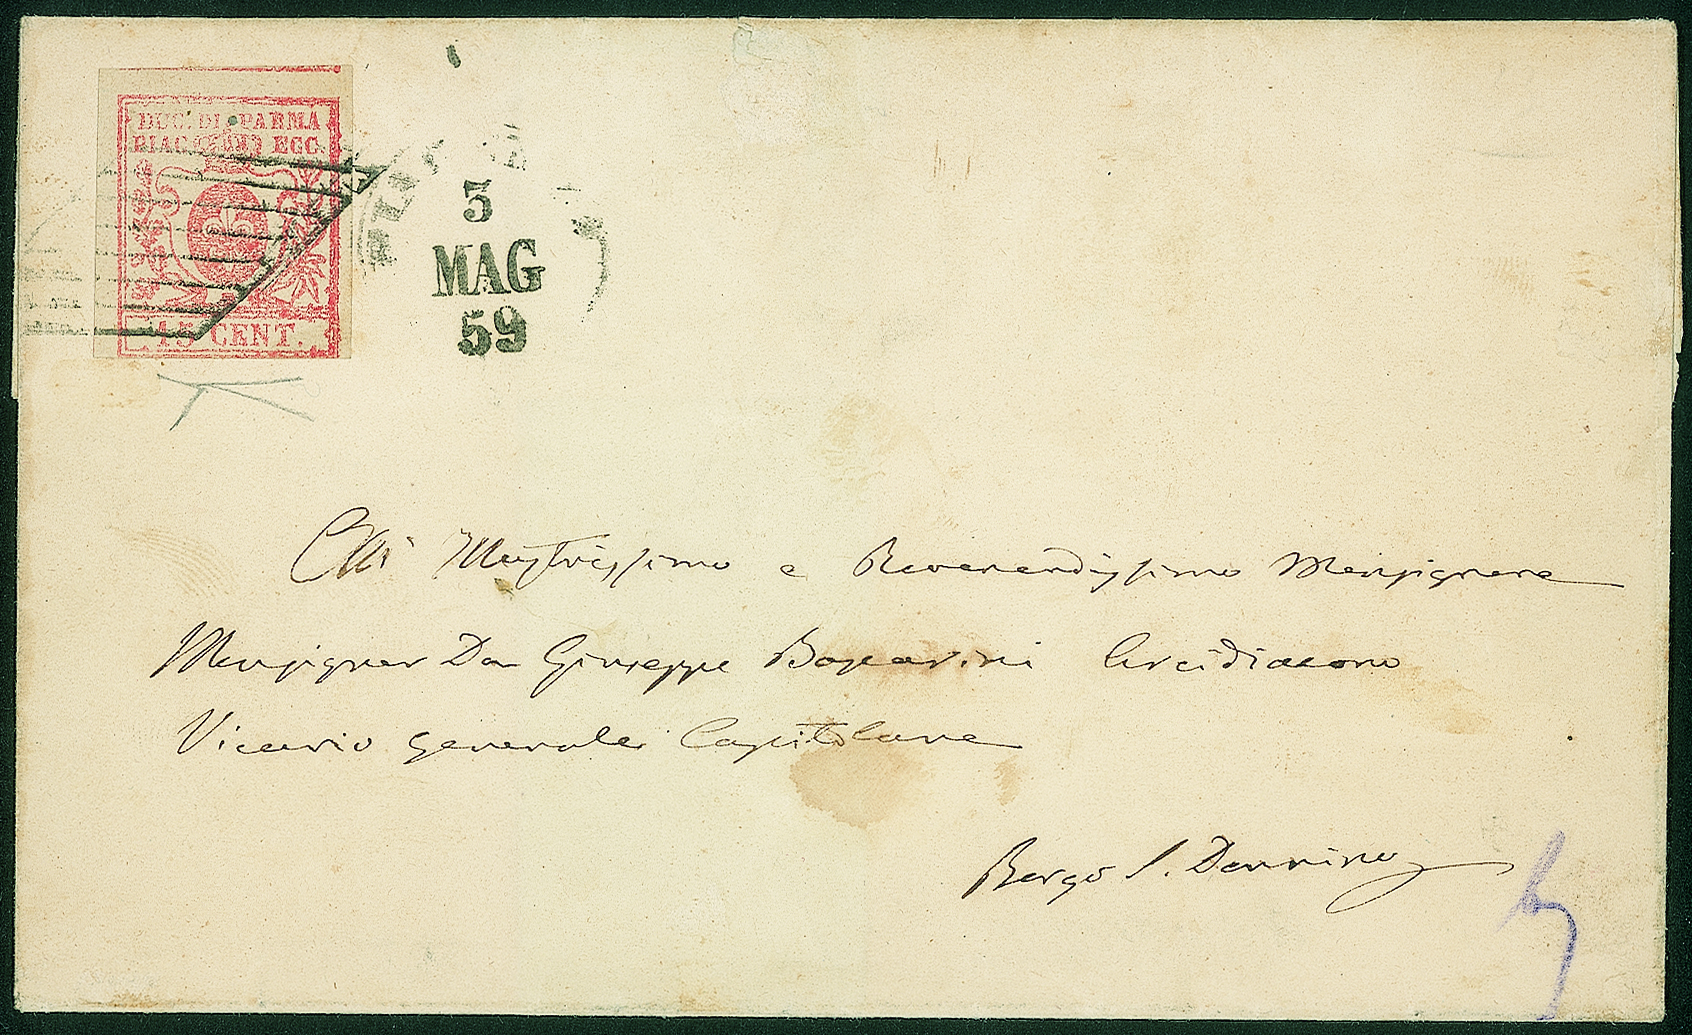 DUC. DI PARMA
PIAC. ECC.
15 CENT.
5
MAG
59
Illustrissimo e Reverendissimo Monsignore
Monsignor Don Giuseppe Arcidiacono
Vicario Generale Capitolare
Borgo S. Donnino